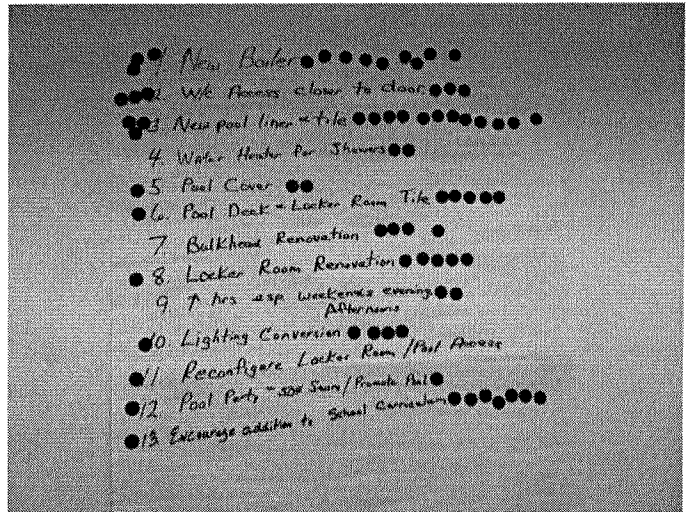 1 New Boiler
2. W/c Access closer to door
3 New pool liner + tile
4 Water Heater for Showers
5 Pool Cover
6. Pool Deck + Locker Room Tile
7 Bulkhead Renovation
8. Locker Room Renovation
9 ↑ hrs esp weekends evening
Afternoons
10. Lighting Conversion
11 Reconfigure Locker Room / Pool Access
12 Pool Party Swim / Promote Pool
13 Encourage addition to School Curriculum